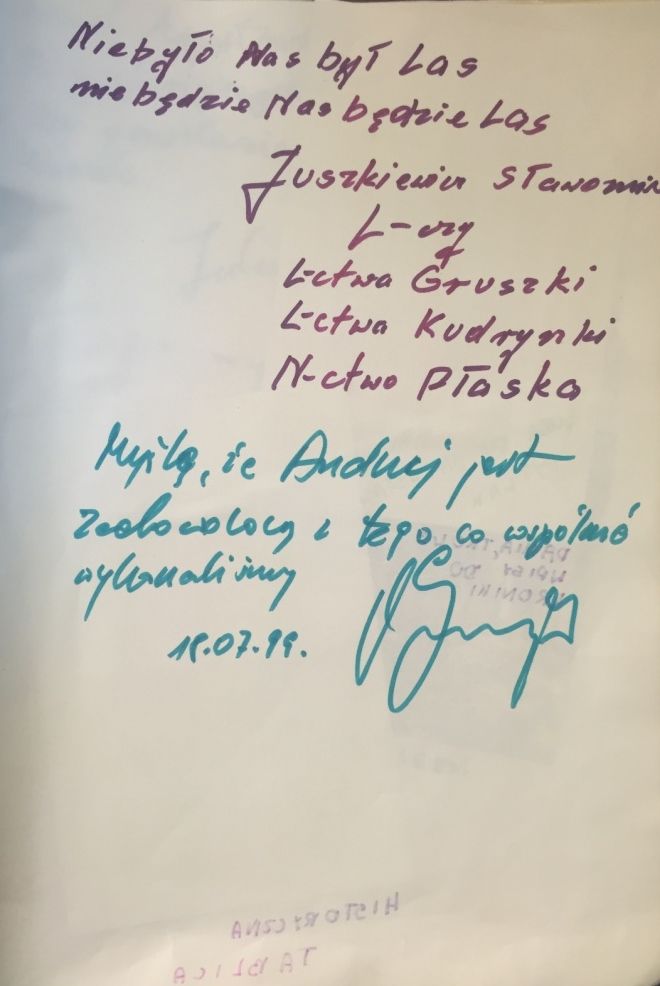 Niebyło Nas był Las
niebędzie Nas będzie Las
Juszkiewicz Sławomir
L-czy
L-ctwa Gruszki
L-ctwa Kudrynki
N-ctwo Płaska
Myślę, że Andrzej jest
zadowolony z tego co wspólnie
wykonaliśmy
18.07.99.
WPISY DO
KRONIKI
HISTORYCZNA
TABLICA